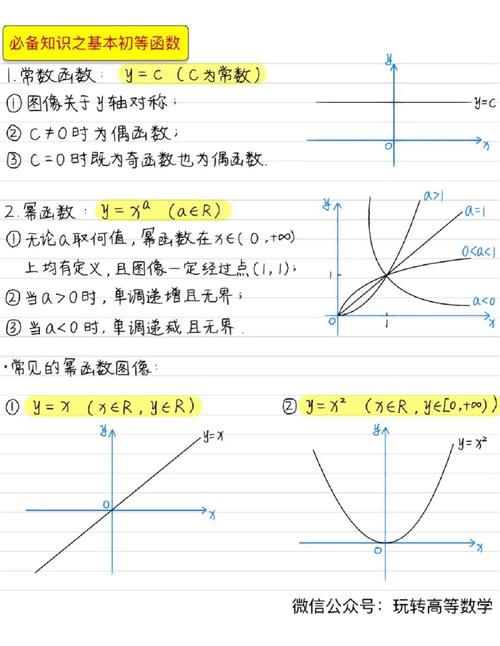 必备知识之基本初等函数
1.常数函数： y=C （C为常数）
① 图像关于y轴对称；
② C≠0时为偶函数；
③ C=0时既为奇函数也为偶函数.
y=C
0
x
2.幂函数： y=xᵃ （a∈R）
①无论a取何值，幂函数在x∈(0,+∞)
上均有定义，且图像一定经过点(1,1)；
②当a>0时，单调递增且无界；
③当a<0时，单调递减且无界.
y
a>1
a=1
0<a<1
a<0
1
0
1
x
·常见的幂函数图像：
① y=x （x∈R，y∈R）
y
y=x
0
x
② y=x² （x∈R，y∈[0,+∞)）
y
y=x²
0
x
微信公众号：玩转高等数学